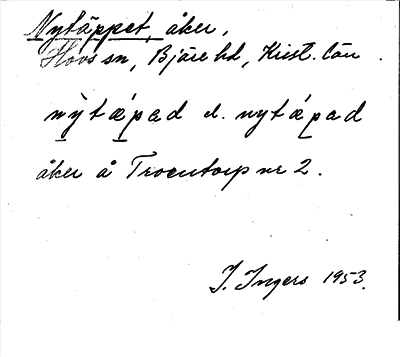 Nytäppet, åker,
Hovs sn, Bjäre hd, Krist. län.
nỳtápad el. nytápad
åker å Troentorp nr 2.
J. Ingers 1953.